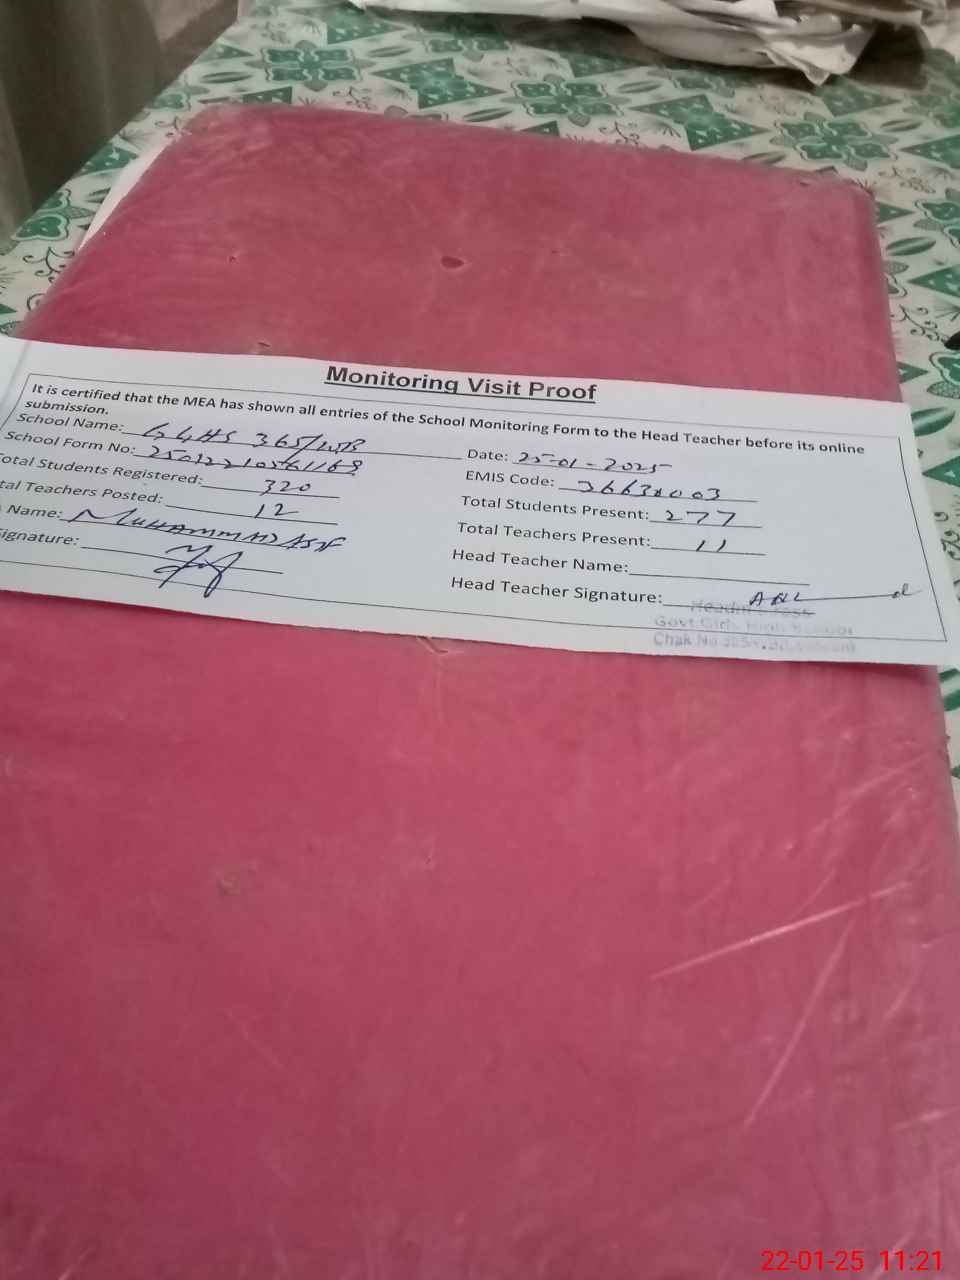 Monitoring Visit Proof
It is certified that the MEA has shown all entries of the School Monitoring Form to the Head Teacher before its online
submission.
School Name: GGHS 365/WB
Date: 25-01-2025
School Form No:
EMIS Code:
otal Students Registered: 320
Total Students Present: 277
tal Teachers Posted: 12
Total Teachers Present: 11
Name: MUHAMMAD ASIF
Head Teacher Name:
ignature:
Head Teacher Signature:
Headmistress
Govt. Girls High School
Chak No
22-01-25 11:21